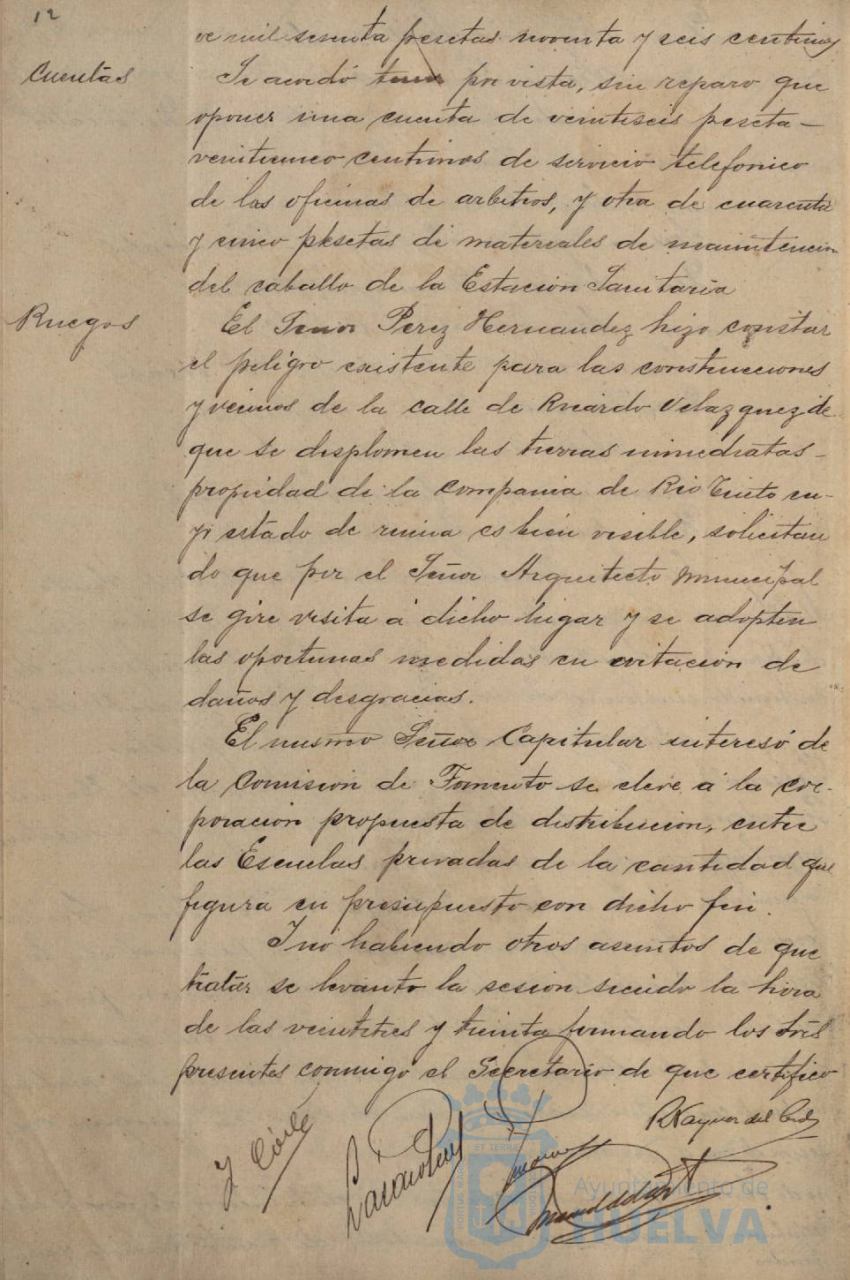 12
ve mil sesenta pesetas noventa y seis centimos
Cuentas
Se acordó por vista, sin reparo que
oponer una cuenta de veintiseis peseta-
veinticinco centimos de servicio telefonico
de las oficinas de arbitrios, y otra de cuarenta
y cinco pesetas de materiales de manutencion
del caballo de la Estacion Sanitaria
Ruegos
El Señor Perez Hernandez hizo constar
el peligro existente para las construcciones
y vecinos de la calle de Ricardo Velazquez de
que se desplomen las tierras inmediatas-
propiedad de la Compania de Rio Tinto cu-
yo estado de ruina es bien visible, solicitan
do que por el Señor Arquitecto municipal
se gire visita á dicho lugar y se adopten
las oportunas medidas en evitacion de
daños y desgracias.
El mismo Señor Capitular interesó de
la Comision de Fomento se eleve á la cor-
poracion propuesta de distribucion, entre
las Escuelas privadas de la cantidad que
figura en presupuesto con dicho fin.
Y no habiendo otros asuntos de que
tratar se levanto la sesion siendo la hora
de las veintitres y treinta firmando los Sres
presentes conmigo el Secretario de que certifico
Ayuntamiento de
HUELVA